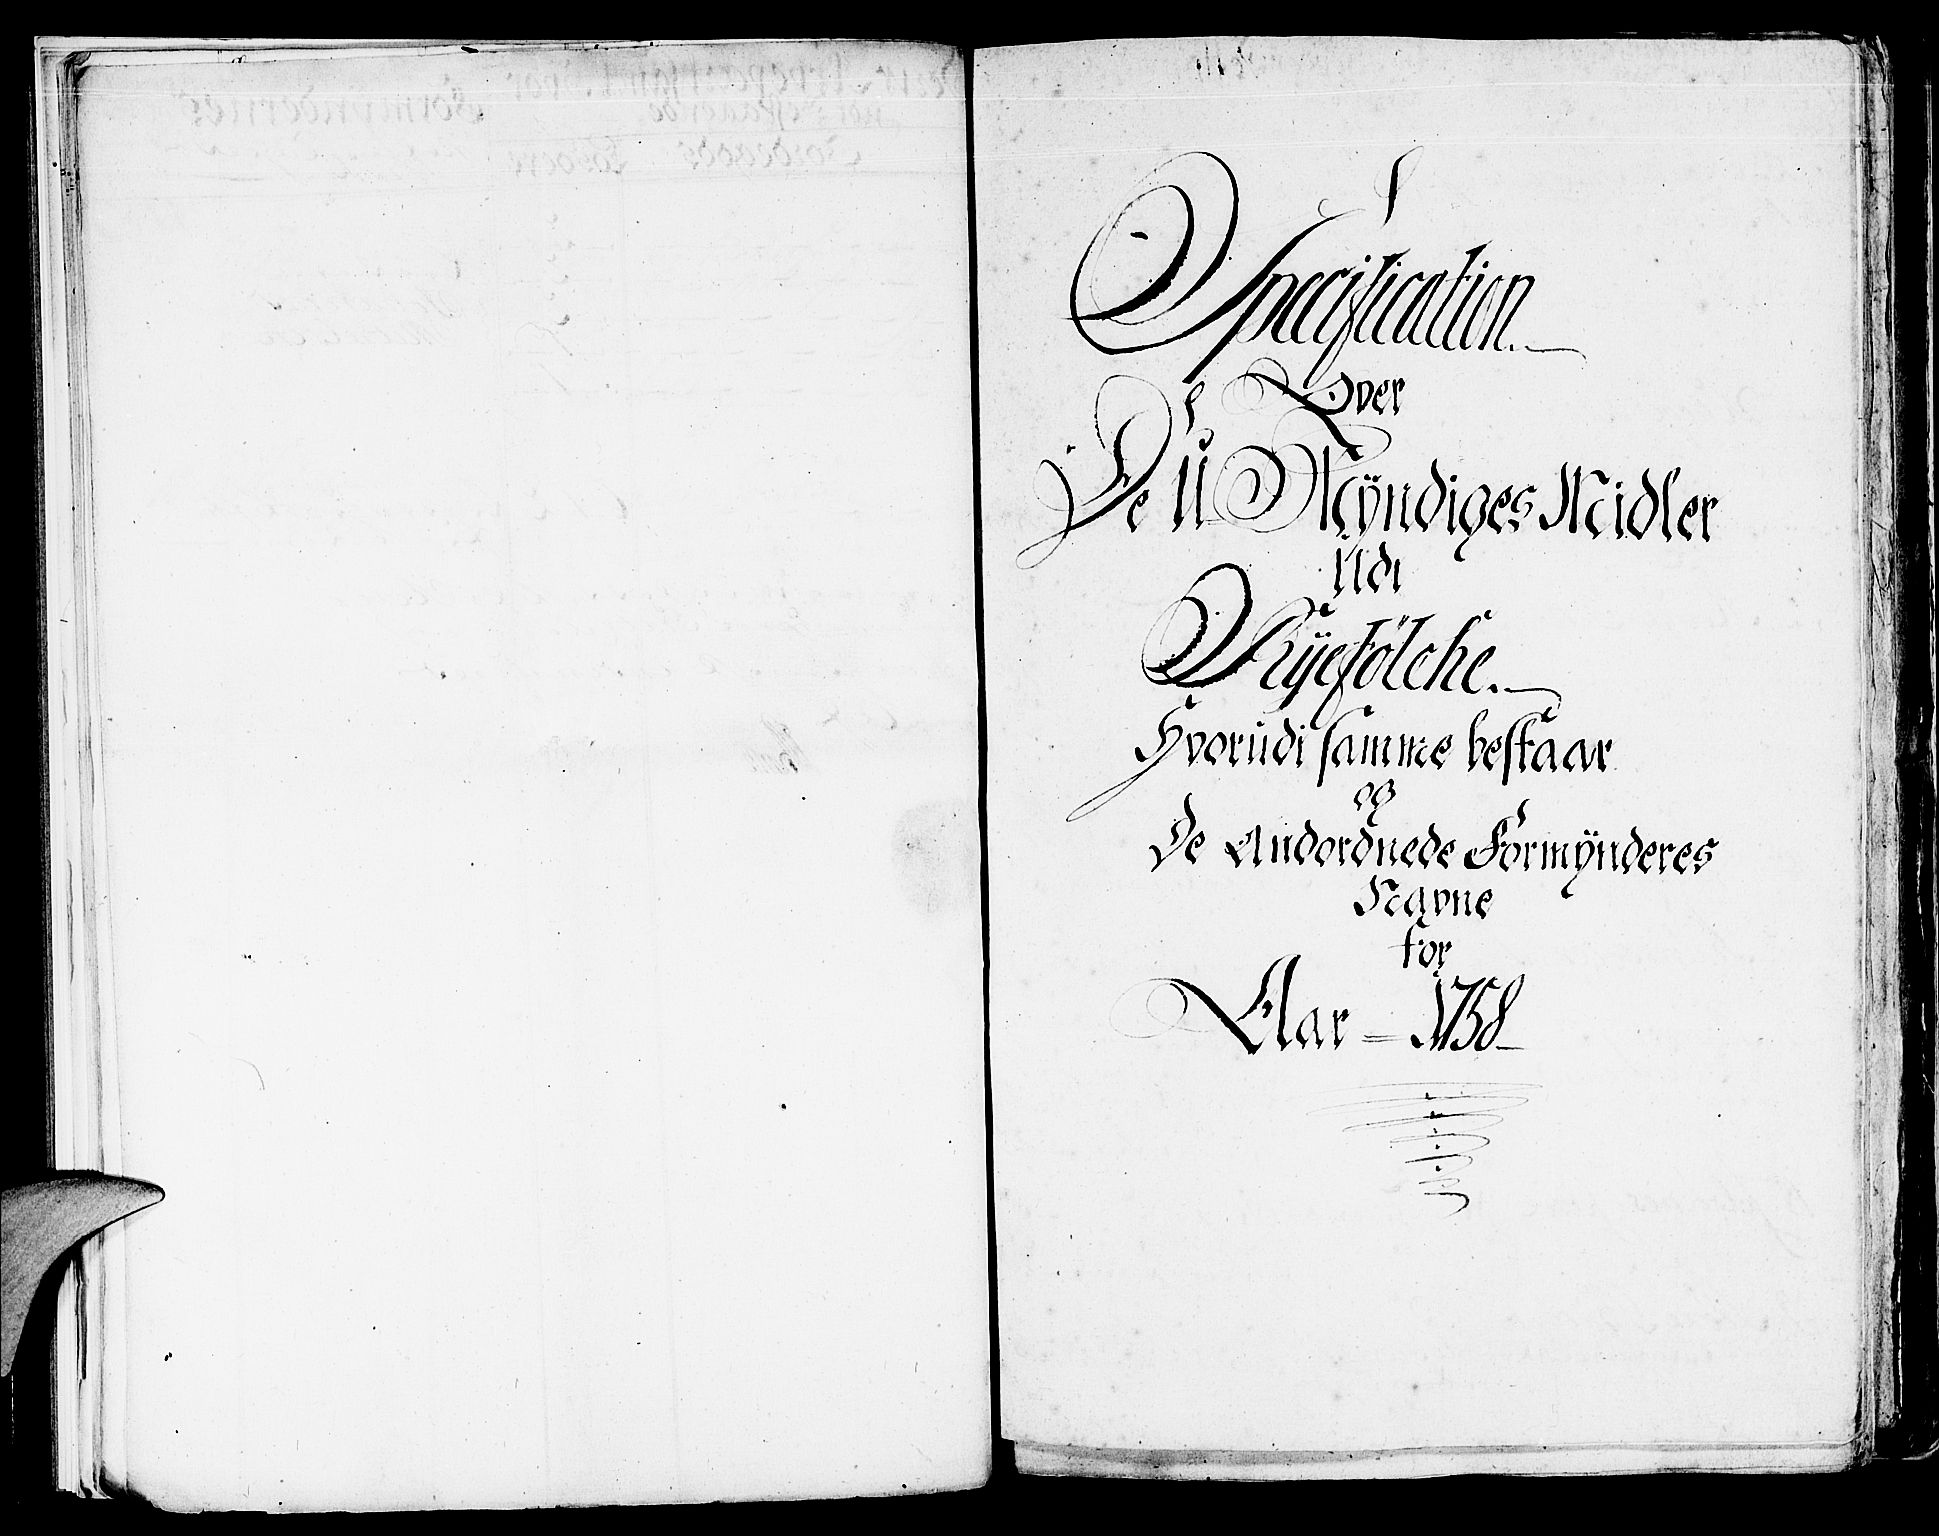 Specification.
Over
De U-Myndiges Midler
Udi
Ryefölcke.
Hvorudi samme bestaar
og
De Andordnede Formÿnderes
Navne
for
Aar = 1758